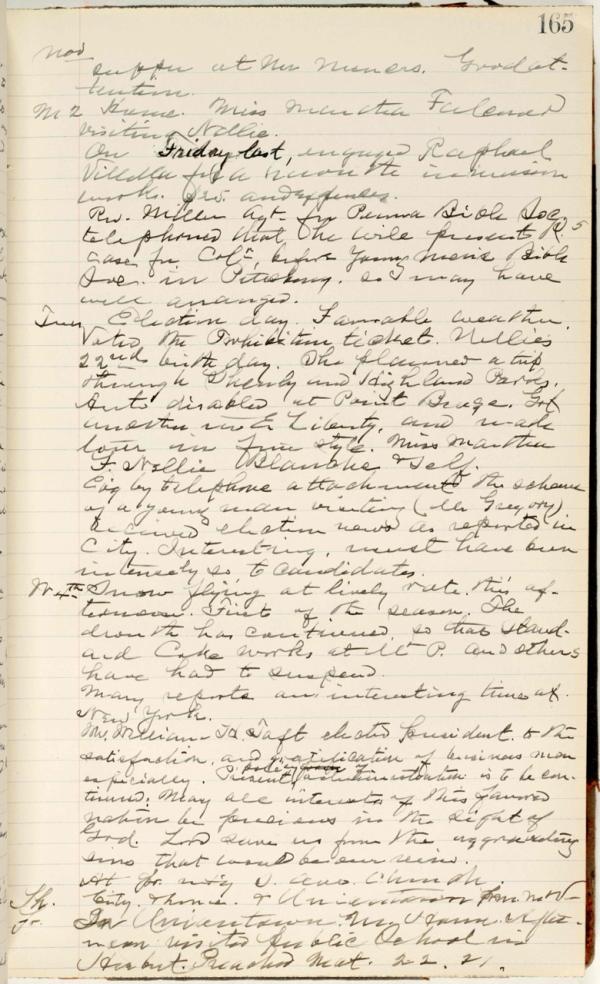 165
Nov
supper at Mr Miners. Good at-
tention.
M 2 Home. Miss Martha Falconer
visiting Nellie.
On Friday last, engaged Raphael
Villella for a month in mission
work. and expenses.
Rev. Miller Agt. for Penna Bible Soc.
telephoned that he will present P. 5
case for Col, before Young Men's Bible
Soc. in Pittsburg. so I may have
well arranged.
Tues Election day. Favorable weather.
Voted the Prohibition ticket. Nellie's
22nd birth day. She planned a trip
through Schenly and Highland Parks.
Auto disabled at Point Breeze. Got
another in E Liberty, and made
tour in fine style. Miss Martha
F. Nellie Blanche & Self.
by telephone attachment the scheme
of a young man visiting (Mr Gregory)
received election news as reported in
City. Interesting, must have been
intensely so, to candidates.
W 4th Snow flying at lively rate this af-
ternoon. First of the season. The
drouth has continued, so that Stand-
ard Coke Works at Mt P. and others
have had to suspend.
Mary reports an interesting time at
New York.
Mr. William H Taft elected President. to the
satisfaction, and gratification of business men
especially. Present administration is to be con-
tinued. May all interests of this favored
nation be precious in the sight of
God. Lord save us from the aggravating
sins that would be our ruin.
At pr. m't'g J. Ave. Church.
Th. City. Home. & Uniontown from
Fr. In Uniontown. Home. After-
noon visited Public School in
Preached Mat. 22. 21.